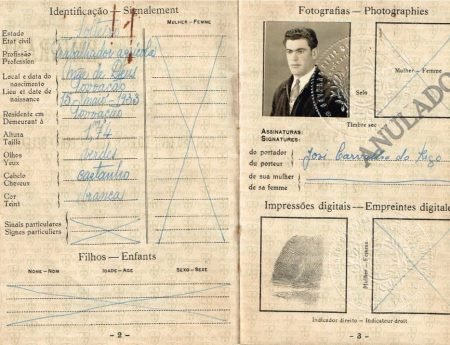 Identificação — Signalement
MULHER - FEMME
Estado
Etat civil
Solteiro
Profissão
Profession
Trabalhador agricola
Local e data do
nascimento
Lieu et date de
naissance
15 - maio - 1933
Residente em
Demeurant à
Altura
Taille
1,74
Olhos
Yeux
verdes
Cabelo
Cheveux
castanho
Côr
Teint
branca
Sinais particulares
Signes particuliers
Filhos — Enfants
NOME - NOM
IDADE - AGE
SEXO - SEXE
- 2 -
Fotografias — Photographies
Mulher - Femme
Sêlo
Timbre sec
ANULADO
ASSINATURAS:
SIGNATURES:
do portador
du porteur
José Carvalho do
de sua mulher
de sa femme
Impressões digitais — Empreintes digitales
Mulher - Femme
Indicador direito — Indicateur droit
- 3 -